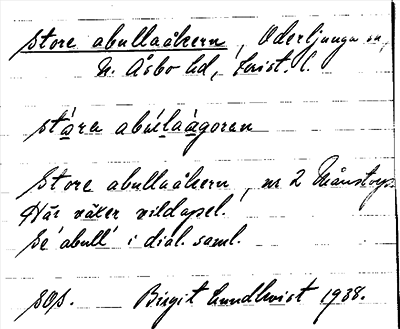 Store abullaåkern, Oderljunga sn,
N. Åsbo hd, Krist. l.
stára abúlaågoren
Store abullaåkern, nr 2 Månstorp.
Här växer vildapel.
Se 'abull' i dial. saml.
Birgit Lundkvist 1938.